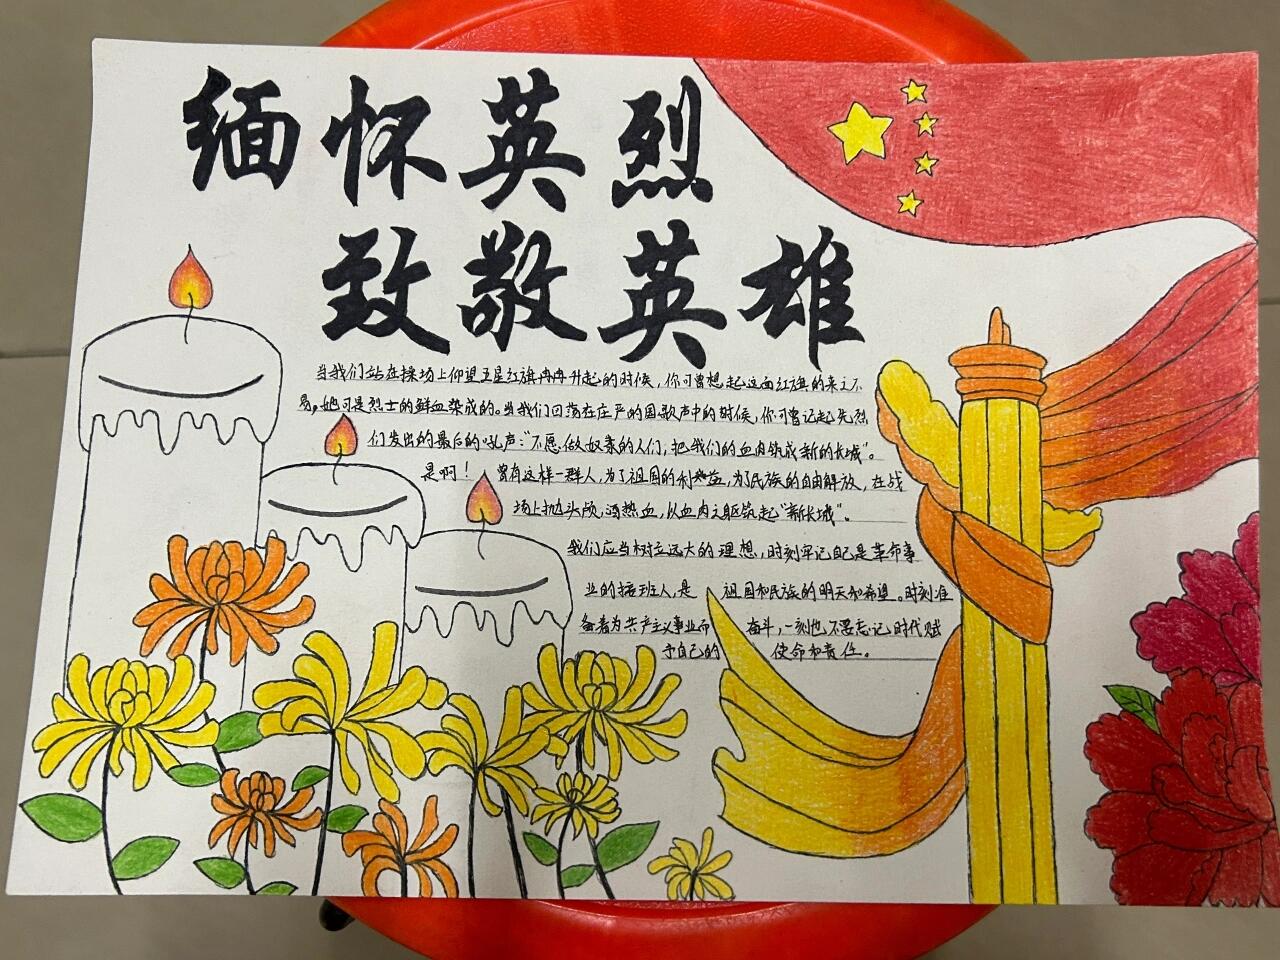 缅怀英烈
致敬英雄
当我们站在操场上仰望五星红旗冉冉升起的时候，你可曾想起这面红旗的来之不
易，她可是烈士的鲜血染成的。当我们回荡在庄严的国歌声中的时候，你可曾记起先烈
们发出的最后的吼声：“不愿做奴隶的人们，把我们的血肉筑成新的长城”。
是啊！曾有这样一群人，为了祖国的利益，为了民族的自由解放，在战
场上抛头颅，洒热血，以血肉之躯筑起“新长城”。
我们应当树立远大的理想，时刻牢记自己是革命事
业的接班人，是祖国和民族的明天和希望。时刻准
备着为共产主义事业而奋斗，一刻也不要忘记时代赋
予自己的使命和责任。